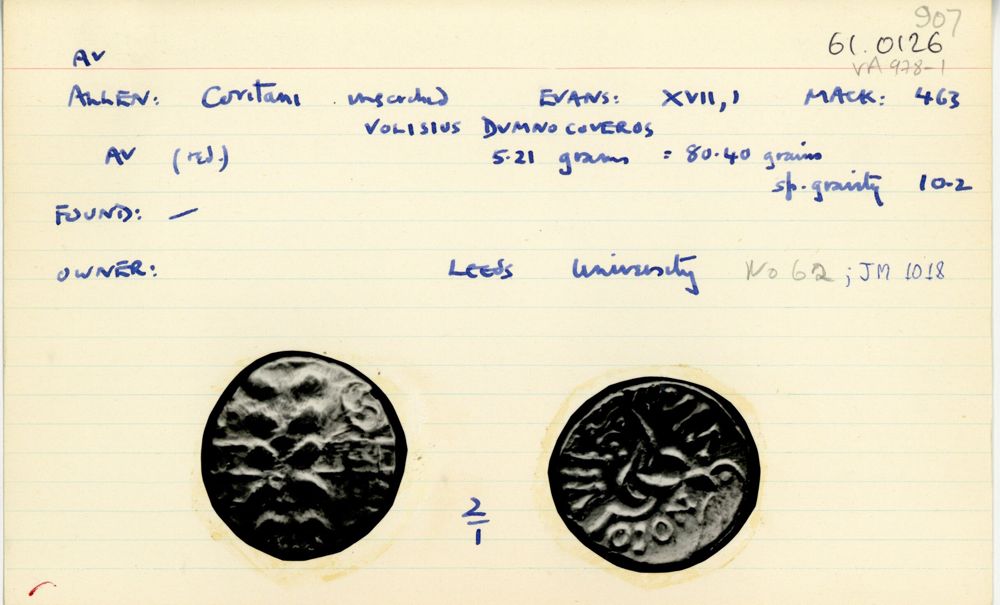 907
61.0126
VA 978-1
AV
ALLEN: Coritani inscribed EVANS: XVII, 1 MACK: 463
VOLISIUS DUMNOCOVEROS
AV (red.) 5.21 grams = 80.40 grains
sp. gravity 10.2
FOUND: —
OWNER: LEEDS University No 62 ; JM 1018
2
1